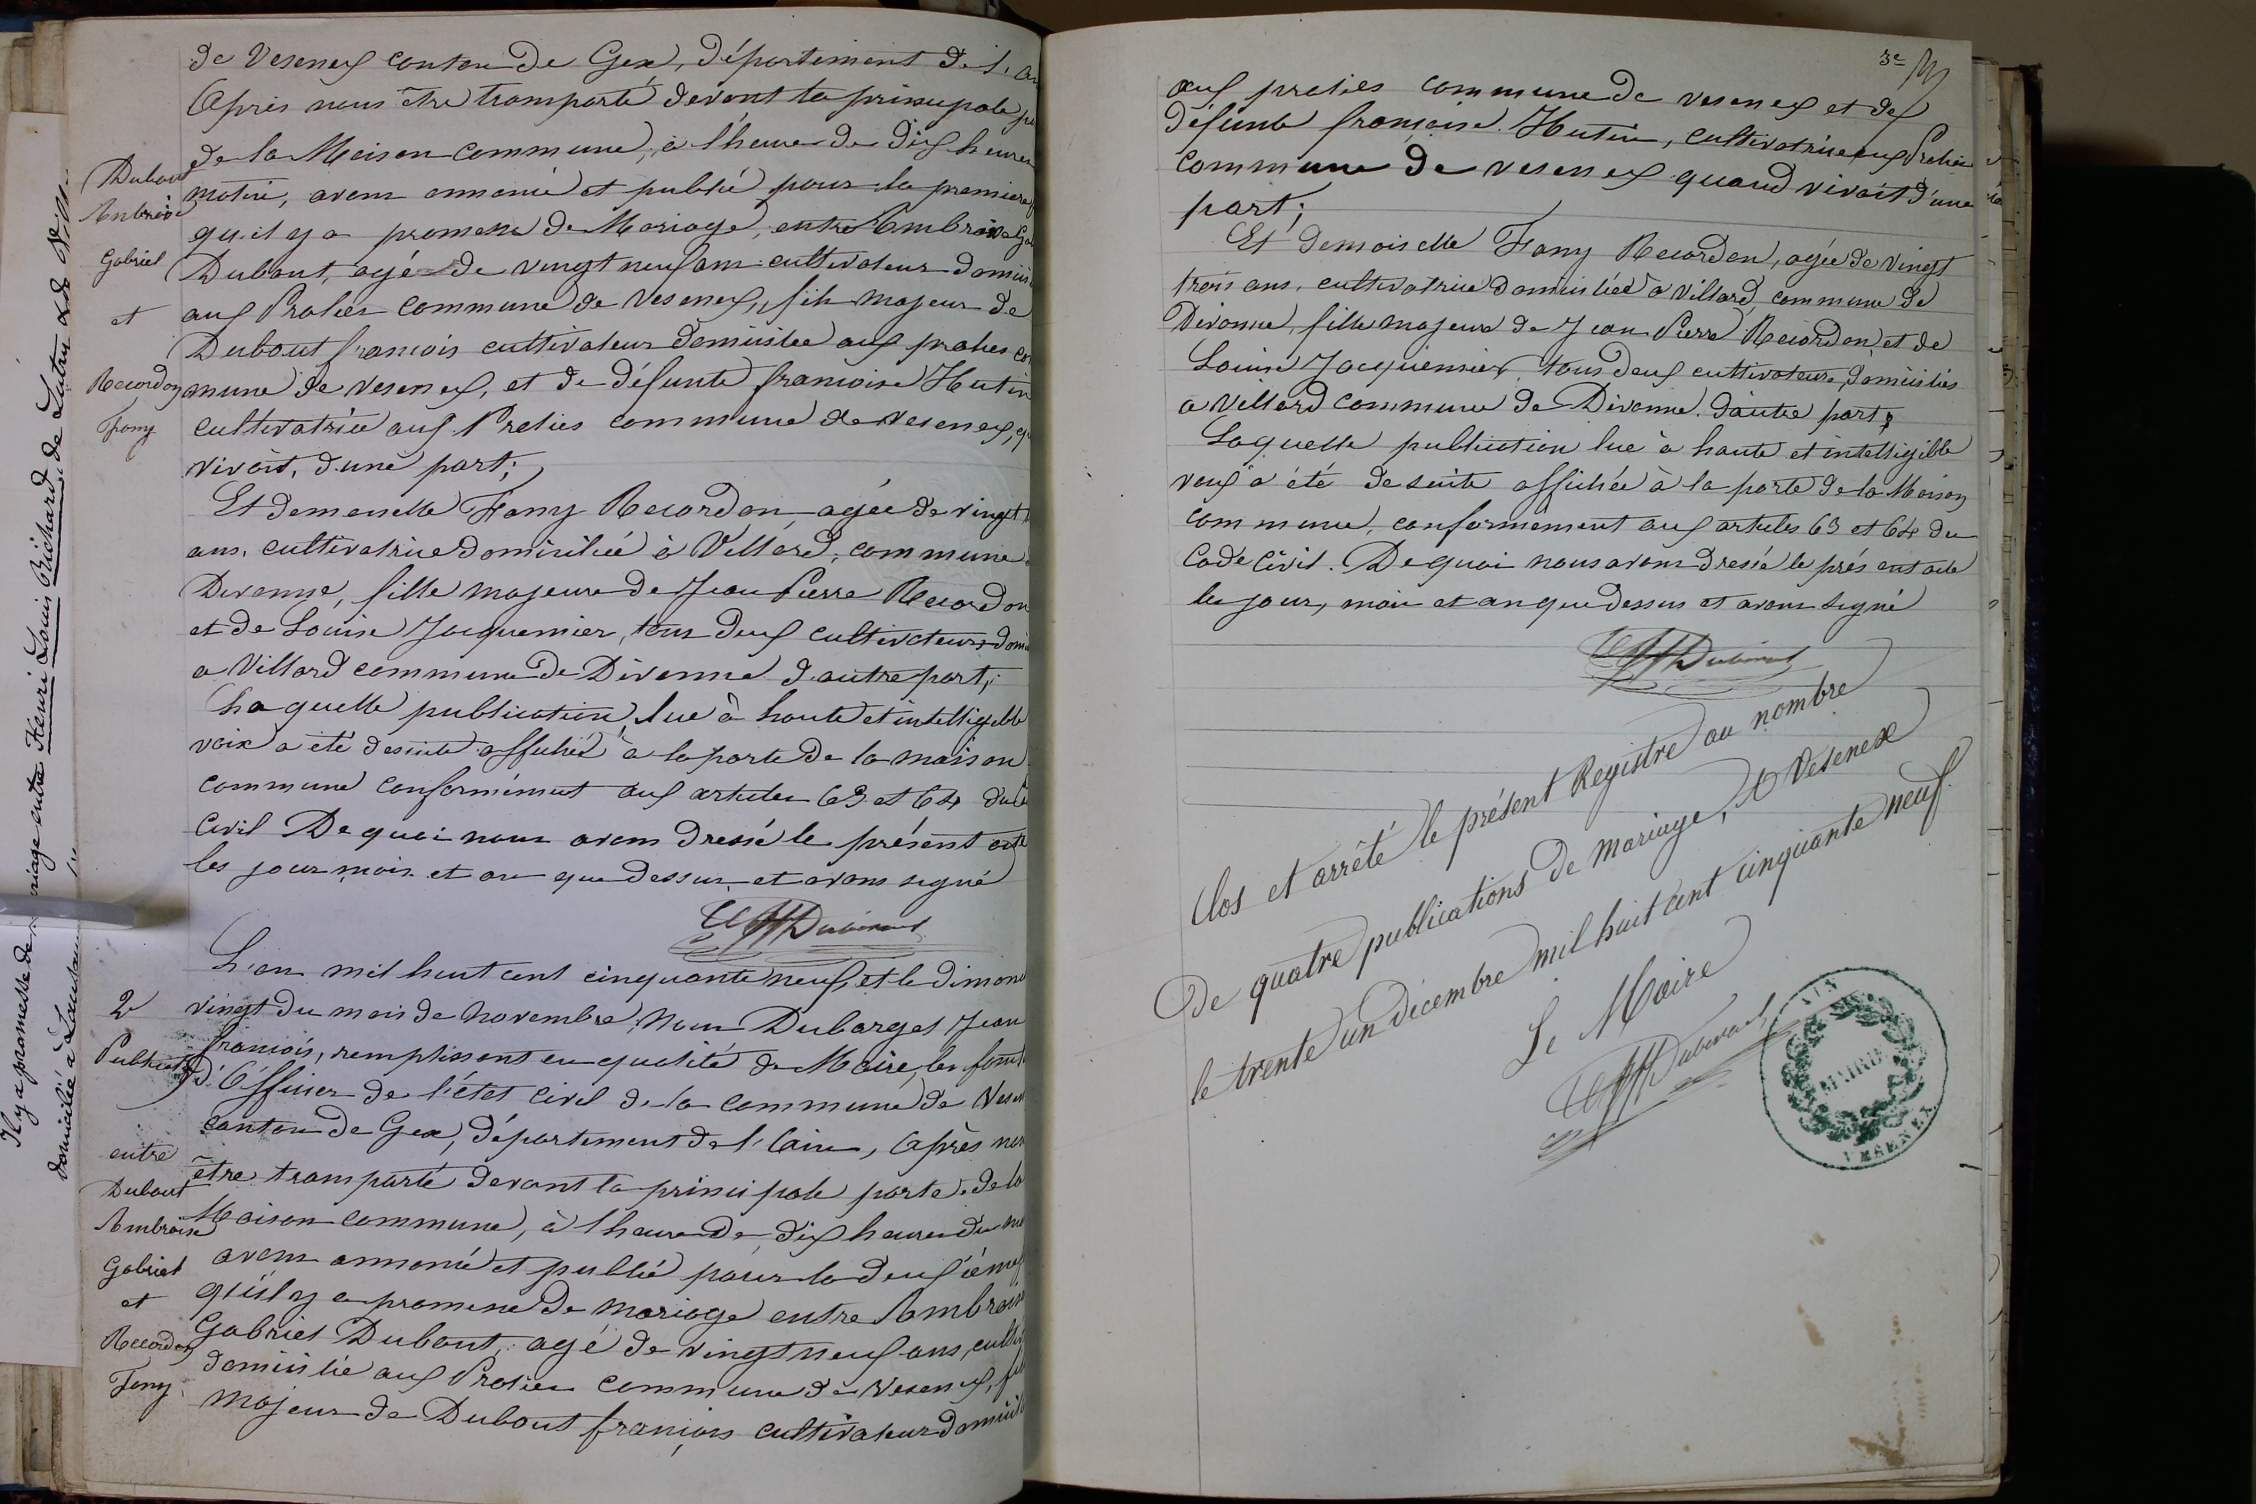 de Vesenex canton de Gex, département de l'
Après nous être transporté devant la principale
de la Maison commune, à l'heure de dix heures
matin, avons annoncé et publié pour la premiere
qu'il y a promesse de Mariage, entre Ambroise
Dubout, agé de vingt neuf ans cultivateur
aux Prolies commune de Vesenex, fils majeur de
Dubout francois cultivateur domicilie aux prolies
mune de Vesenex, et de défunte francoise Hutin
cultivatrice aux Prelies commune de Vesenex,
vivoit, d'une part;
Et demoiselle Fany Recordon agée de vingt
ans, cultivatrice domiciliée à Villard, commune
Divonne, fille majeure de Jean Pierre Recordon
et de Louise Jacquemier, tous deux cultivateurs
a Villard commune de Divonne d'autre part,
Laquelle publication, lue à haute et intelligible
voix a été desuite affichée à la porte de la maison
commune conformément aux articles 63 et 64 du
Civil De quoi nous avons dressé le présent acte
les jour mois et an que dessus et avons signé
Dubout
Ambroise
Gabriel
et
Recordon
Fany
L'an mil huit cent cinquante neuf, et le
vingt du mois de Novembre, Nous Dubarget Jean
francois, remplissant en qualité de Maire, les
d'Officier de l'état civil de la commune de
canton de Gex, département de l'Ain, Après
être transporté devant la principale porte de la
Maison commune, à l'heure de dix heures du
avons annoncé et publié pour la deuxième
qu'il y a promesse de mariage entre Ambroise
Gabriel Dubout, agé de vingt neuf ans,
domicilie aux Prolies commune de Vesenex,
majeur de Dubout françois cultivateur
2
entre
Dubout
Ambroise
Gabriel
et
Recordon
Fany
Il y a promesse de mariage entre Henri Louis Richard de
domicilié à
3e
aux prelies commune de vesenex et de
défunte françoise Hutin, cultivatrice aux Prelies
commune de vesenex quand vivoit d'une
part;
Et demoiselle Fany Recordon, agée de vingt
trois ans, cultivatrice domiciliée à Villard, commune de
Divonne, fille majeure de Jean Pierre Recordon et de
Louise Jacquemier, tous deux cultivateurs, domiciliés
a Villard commune de Divonne. d'autre part;
Laquelle publication lue à haute et intelligible
voix a été de suite affichée à la porte de la Maison
commune, conformément aux articles 63 et 64 du
Code Civil. De quoi nous avons dressé le présent acte
les jour, mois et an que dessus et avons signé
Clos et arrêté le présent Registre au nombre
De quatre publications de mariage, à Vesenex
le trente un décembre mil huit cent cinquante neuf.
Le Maire
AIN
MAIRIE
VESENEX